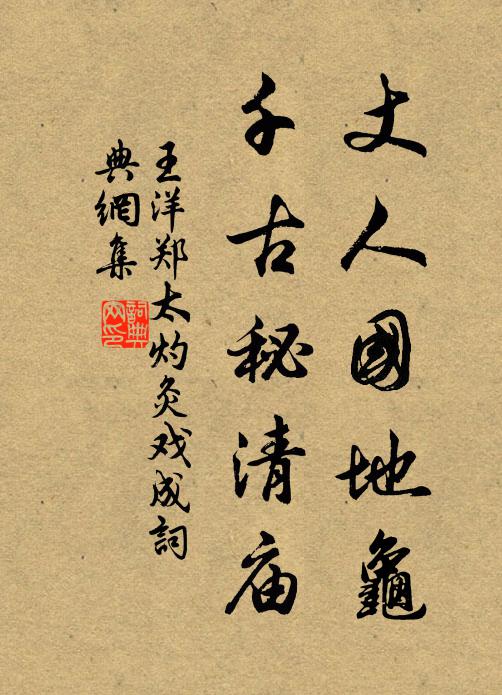 丈人國地龜
千古秘清庙
王洋郑太灼灸戏成詞
典網集
詞典網印